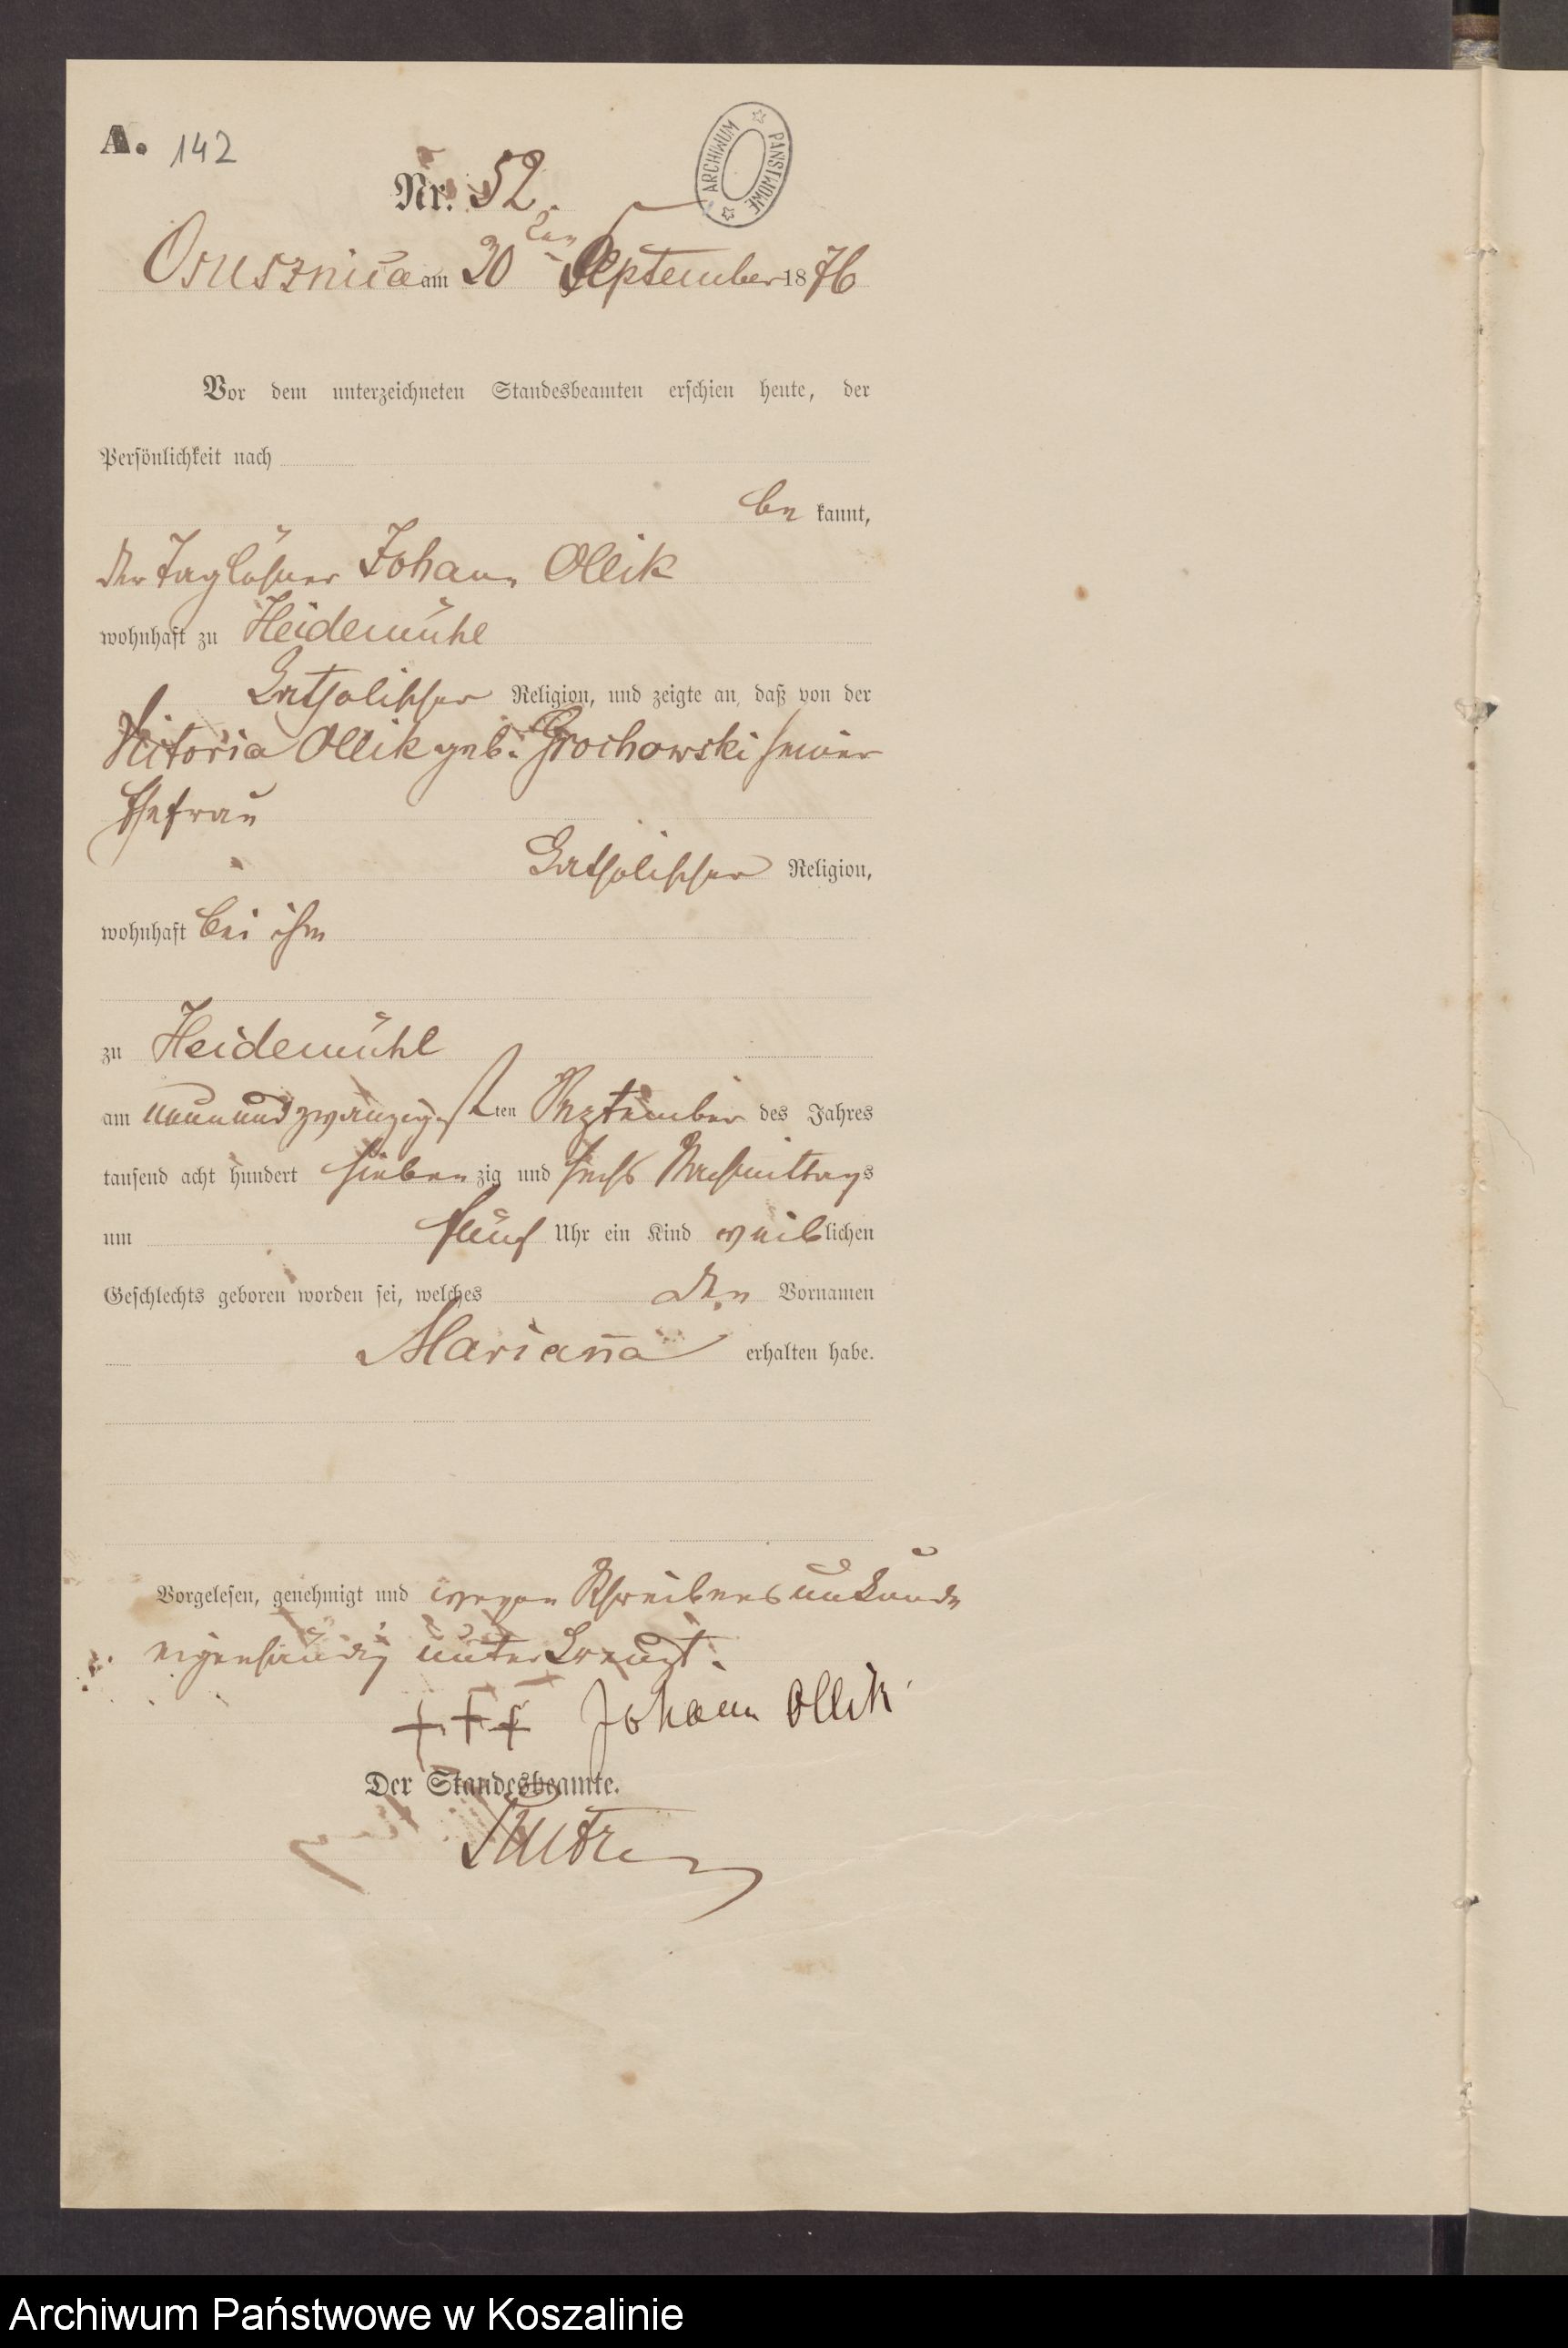 A. 142
ARCHIWUM PAŃSTWOWE
Nr. 52.
Osusznica am 30ten September 1876
Vor dem unterzeichneten Standesbeamten erschien heute, der
Persönlichkeit nach
be kannt,
der Taglöhner Johann Ollik
wohnhaft zu Heidemühl
Katholischer Religion, und zeigte an, daß von der
Victoria Ollik geb. Grochowski seiner
Ehefrau
Katholischer Religion,
wohnhaft bei ihm
zu Heidemühl
am neunundzwanzigsten September des Jahres
tausend acht hundert siebenzig und sechs Nachmittags
um fünf Uhr ein Kind weiblichen
Geschlechts geboren worden sei, welches den Vornamen
Marianna erhalten habe.
Vorgelesen, genehmigt und wegen Schreibensunkunde
eigenhändig unterkreuzt.
+++ Johann Ollik
Der Standesbeamte.
Archiwum Państwowe w Koszalinie